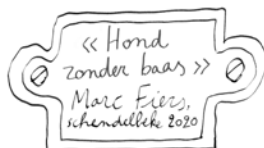 « Hond
zonder baas »
Marc Fiers,
schendelbeke 2020